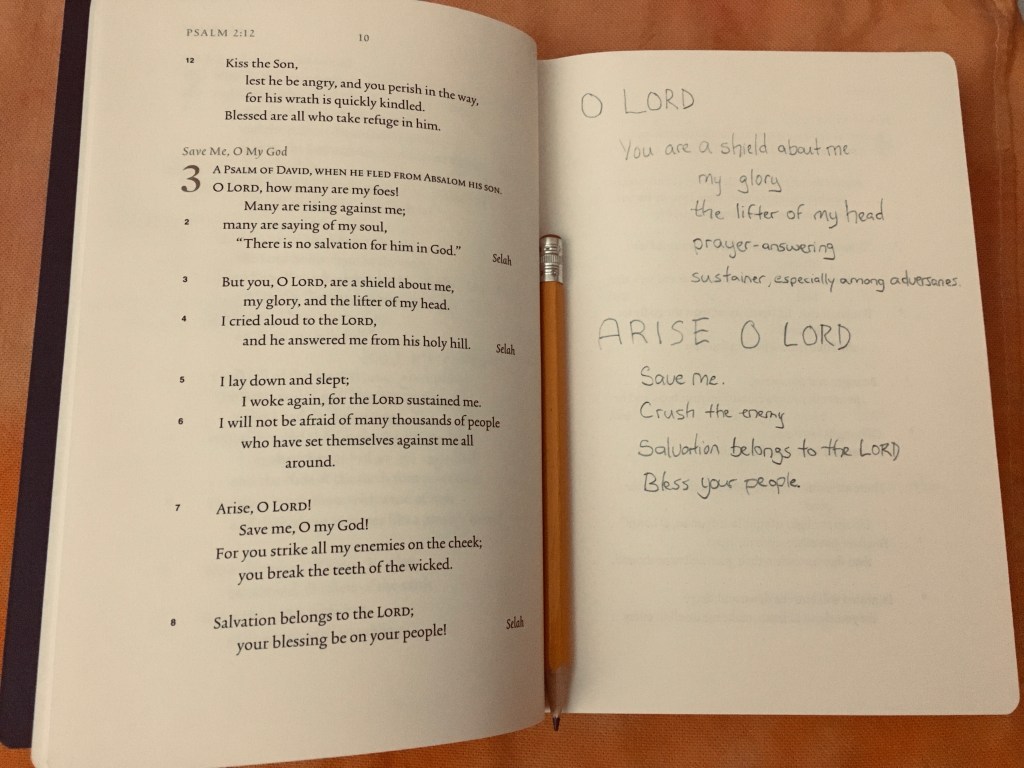 PSALM 2:12
10
12 Kiss the Son,
lest he be angry, and you perish in the way,
for his wrath is quickly kindled.
Blessed are all who take refuge in him.
Save Me, O My God
3 A PSALM OF DAVID, WHEN HE FLED FROM ABSALOM HIS SON.
O LORD, how many are my foes!
Many are rising against me;
2 many are saying of my soul,
“There is no salvation for him in God.” Selah
3 But you, O LORD, are a shield about me,
my glory, and the lifter of my head.
4 I cried aloud to the LORD,
and he answered me from his holy hill. Selah
5 I lay down and slept;
I woke again, for the LORD sustained me.
6 I will not be afraid of many thousands of people
who have set themselves against me all
around.
7 Arise, O LORD!
Save me, O my God!
For you strike all my enemies on the cheek;
you break the teeth of the wicked.
8 Salvation belongs to the LORD;
your blessing be on your people! Selah
O LORD
You are a shield about me
my glory
the lifter of my head
prayer-answering
sustainer, especially among adversaries.
ARISE O LORD
Save me.
Crush the enemy
Salvation belongs to the LORD
Bless your people.